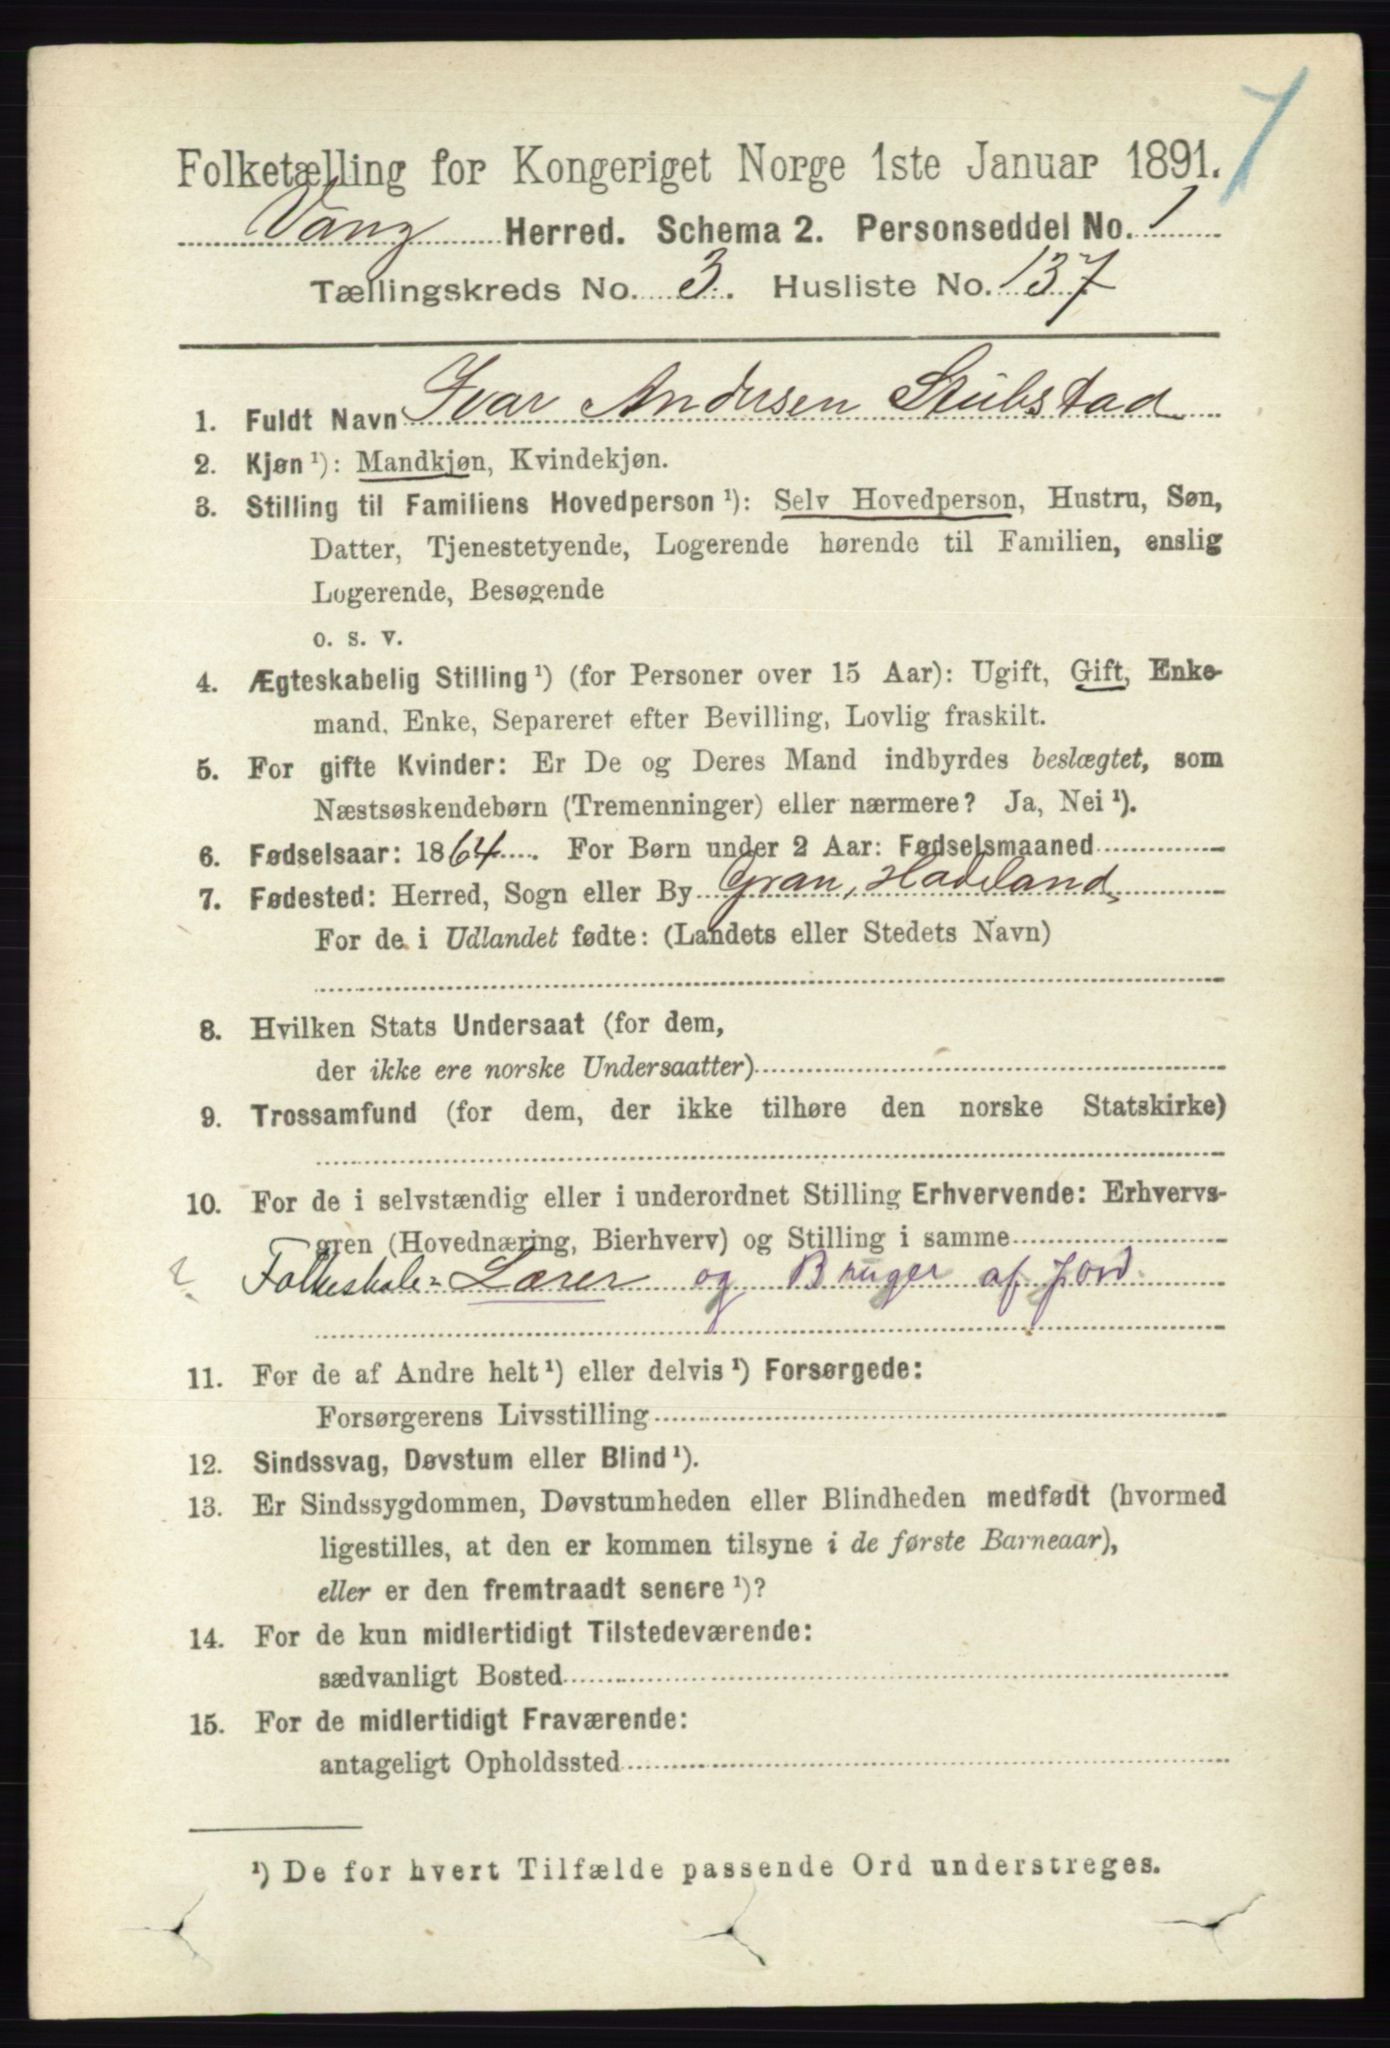 7
Folketælling for Kongeriget Norge 1ste Januar 1891.
Vang Herred. Schema 2. Personseddel No. 1
Tællingskreds No. 3. Husliste No. 137
1. Fuldt Navn Ivar Andersen Stubstad
2. Kjøn ¹): Mandkjøn, Kvindekjøn.
3. Stilling til Familiens Hovedperson ¹): Selv Hovedperson, Hustru, Søn,
Datter, Tjenestetyende, Logerende hørende til Familien, enslig
Logerende, Besøgende
o. s. v.
4. Ægteskabelig Stilling ¹) (for Personer over 15 Aar): Ugift, Gift, Enke-
mand, Enke, Separeret efter Bevilling, Lovlig fraskilt.
5. For gifte Kvinder: Er De og Deres Mand indbyrdes beslægtet, som
Næstsøskendebørn (Tremenninger) eller nærmere? Ja, Nei ¹).
6. Fødselsaar: 1864. For Børn under 2 Aar: Fødselsmaaned
7. Fødested: Herred, Sogn eller By Gran, Hadeland,
For de i Udlandet fødte: (Landets eller Stedets Navn)
8. Hvilken Stats Undersaat (for dem,
der ikke ere norske Undersaatter)
9. Trossamfund (for dem, der ikke tilhøre den norske Statskirke)
10. For de i selvstændig eller i underordnet Stilling Erhvervende: Erhvervs-
gren (Hovednæring, Bierhverv) og Stilling i samme
? Folkeskole= Lærer og Bruger af Jord
11. For de af Andre helt ¹) eller delvis ¹) Forsørgede:
Forsørgerens Livsstilling
12. Sindssvag, Døvstum eller Blind ¹).
13. Er Sindssygdommen, Døvstumheden eller Blindheden medfødt (hvormed
ligestilles, at den er kommen tilsyne i de første Barneaar),
eller er den fremtraadt senere ¹)?
14. For de kun midlertidigt Tilstedeværende:
sædvanligt Bosted
15. For de midlertidigt Fraværende:
antageligt Opholdssted
¹) De for hvert Tilfælde passende Ord understreges.